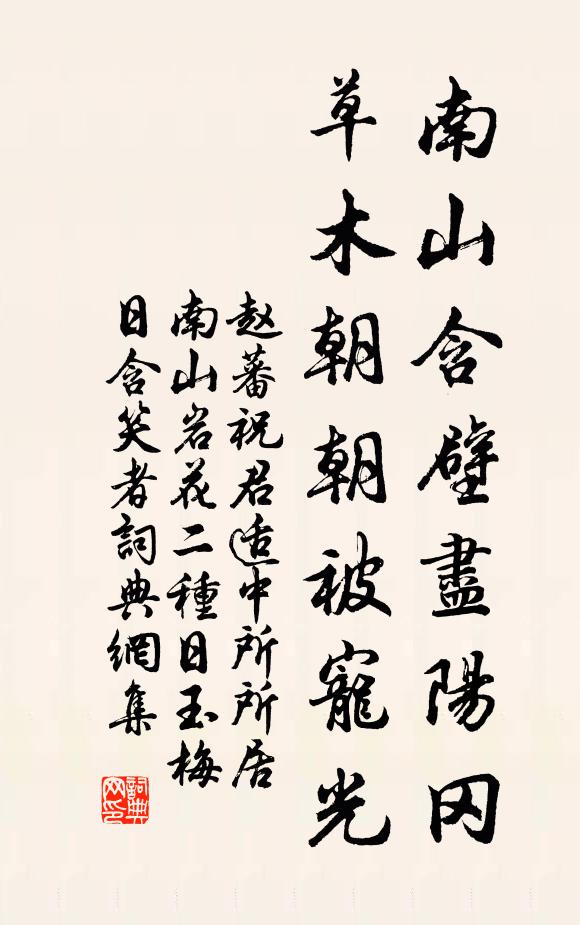 南山含壁盡陽冈
草木朝朝被寵光
赵蕃祝君适中所所居
南山岩花二種日玉梅
日含笑者詞典網集
詞典网印